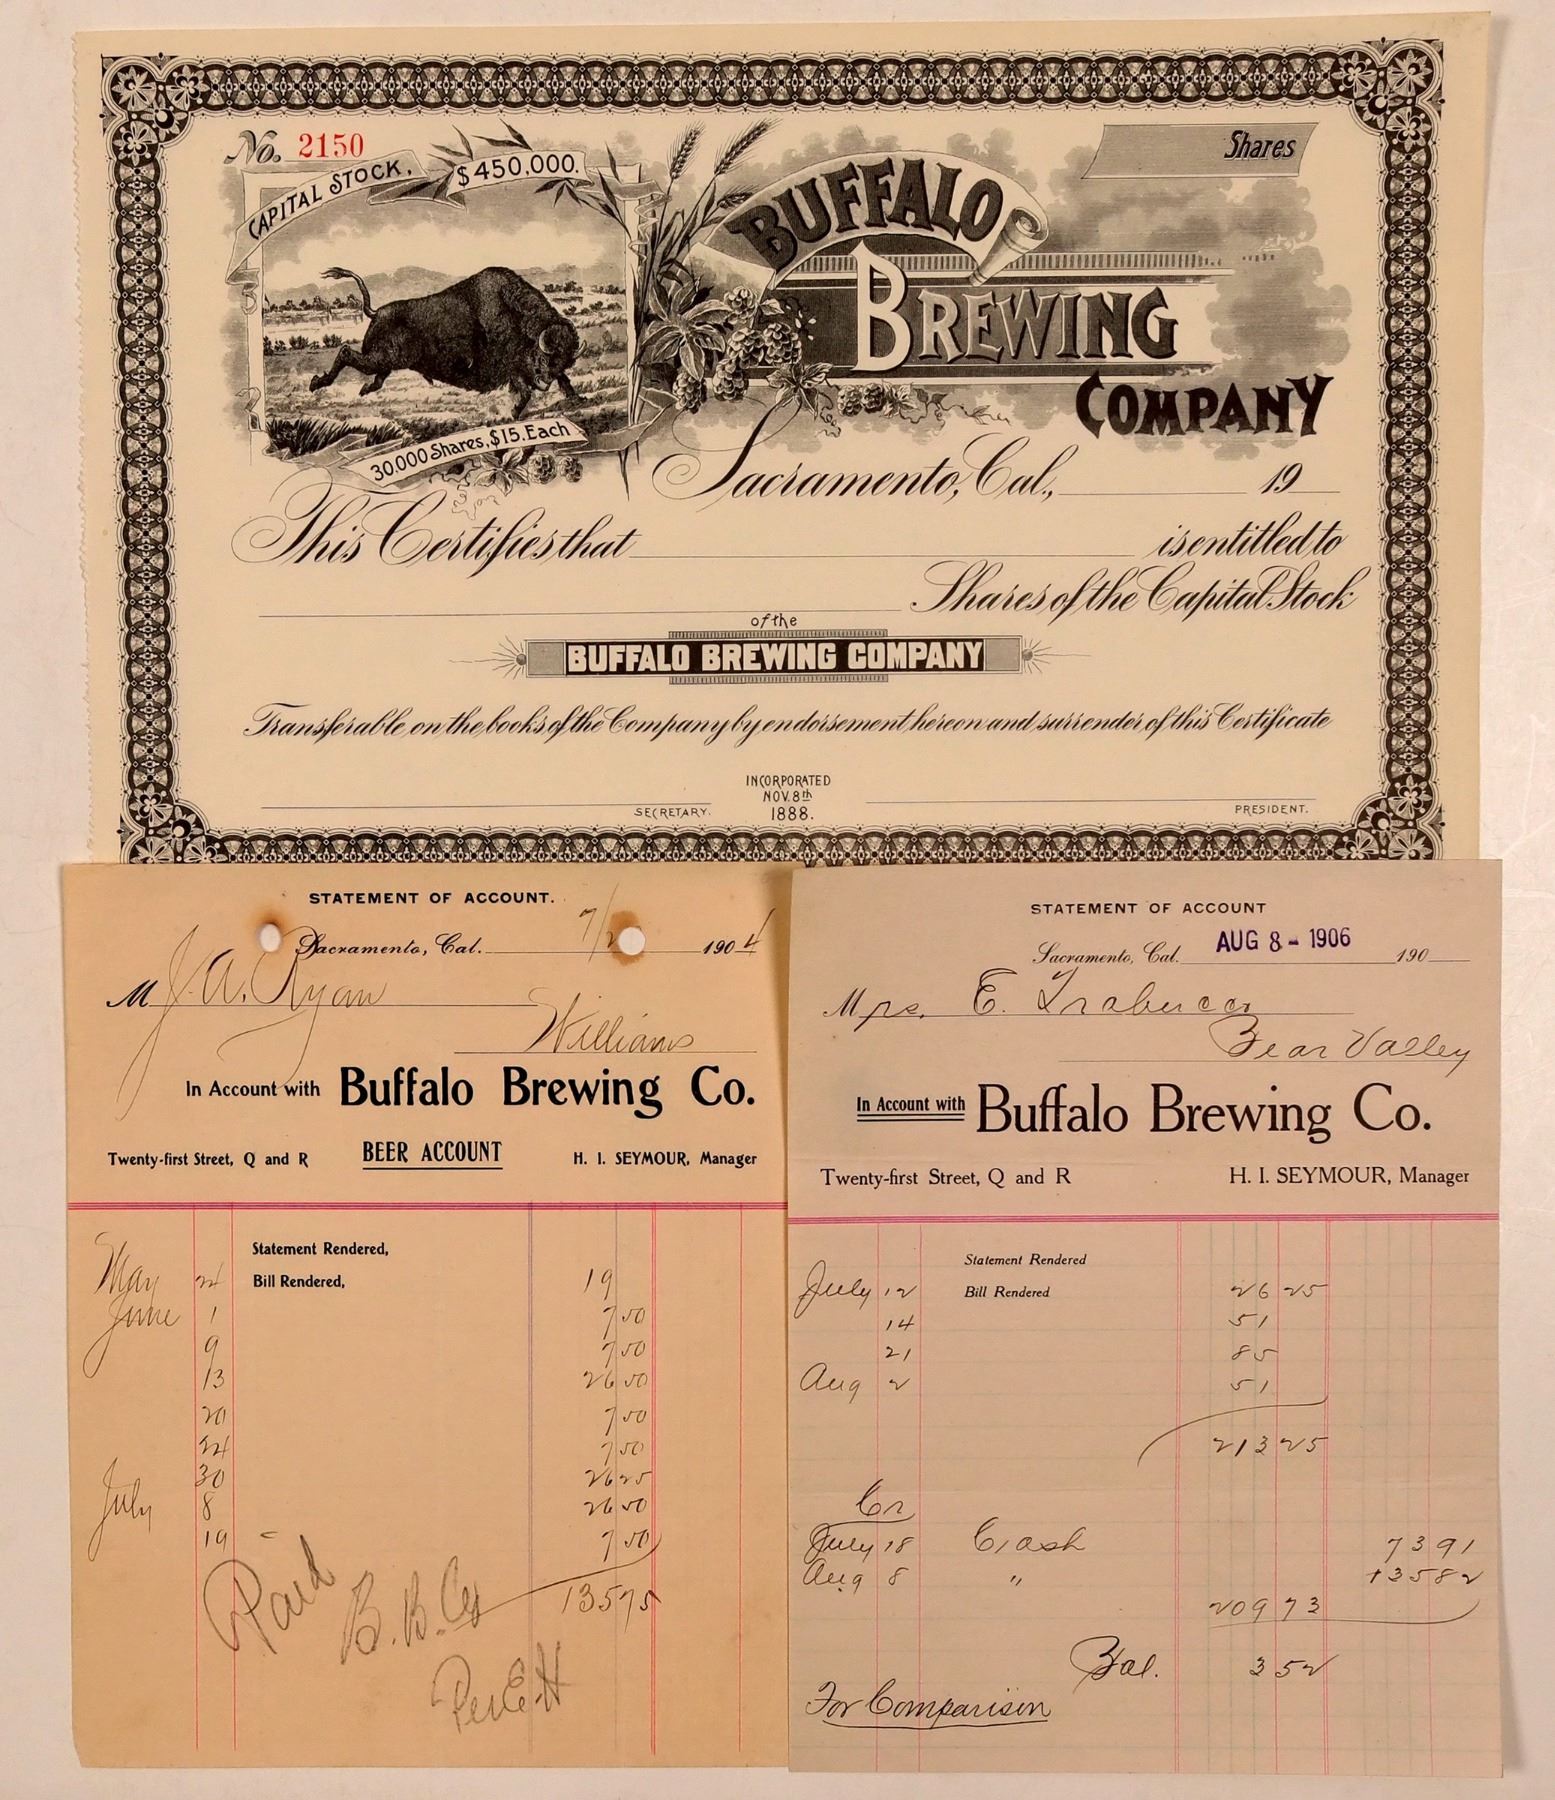 No. 2150
CAPITAL STOCK, $450,000.
Shares
BUFFALO
BREWING
COMPANY
30,000 Shares, $15. Each
Sacramento, Cal., 19
This Certifies that is entitled to
Shares of the Capital Stock
of the
BUFFALO BREWING COMPANY
Transferable on the books of the Company by endorsement hereon and surrender of this Certificate
INCORPORATED
NOV. 8th
1888.
SECRETARY.
PRESIDENT.
STATEMENT OF ACCOUNT.
Sacramento, Cal. 7/2 1904
M J. A. Ryan
Williams
In Account with Buffalo Brewing Co.
Twenty-first Street, Q and R BEER ACCOUNT H. I. SEYMOUR, Manager
Statement Rendered,
May 24 Bill Rendered, 19
June 1 7 50
9 7 50
13 26 50
20 7 50
24 7 50
30 26 25
July 8 26 50
19 7 50
135 75
Paid
B. B. Co
Per E H
STATEMENT OF ACCOUNT
Sacramento, Cal. AUG 8 - 1906 190
Mrs. E. Trabucco
Bear Valley
In Account with Buffalo Brewing Co.
Twenty-first Street, Q and R H. I. SEYMOUR, Manager
Statement Rendered
July 12 Bill Rendered 26 25
14 51
21 85
Aug 2 51
213 25
Cr
July 18 Cash 73 91
Aug 8 " 135 82
209 73
Bal. 3 52
For Comparison